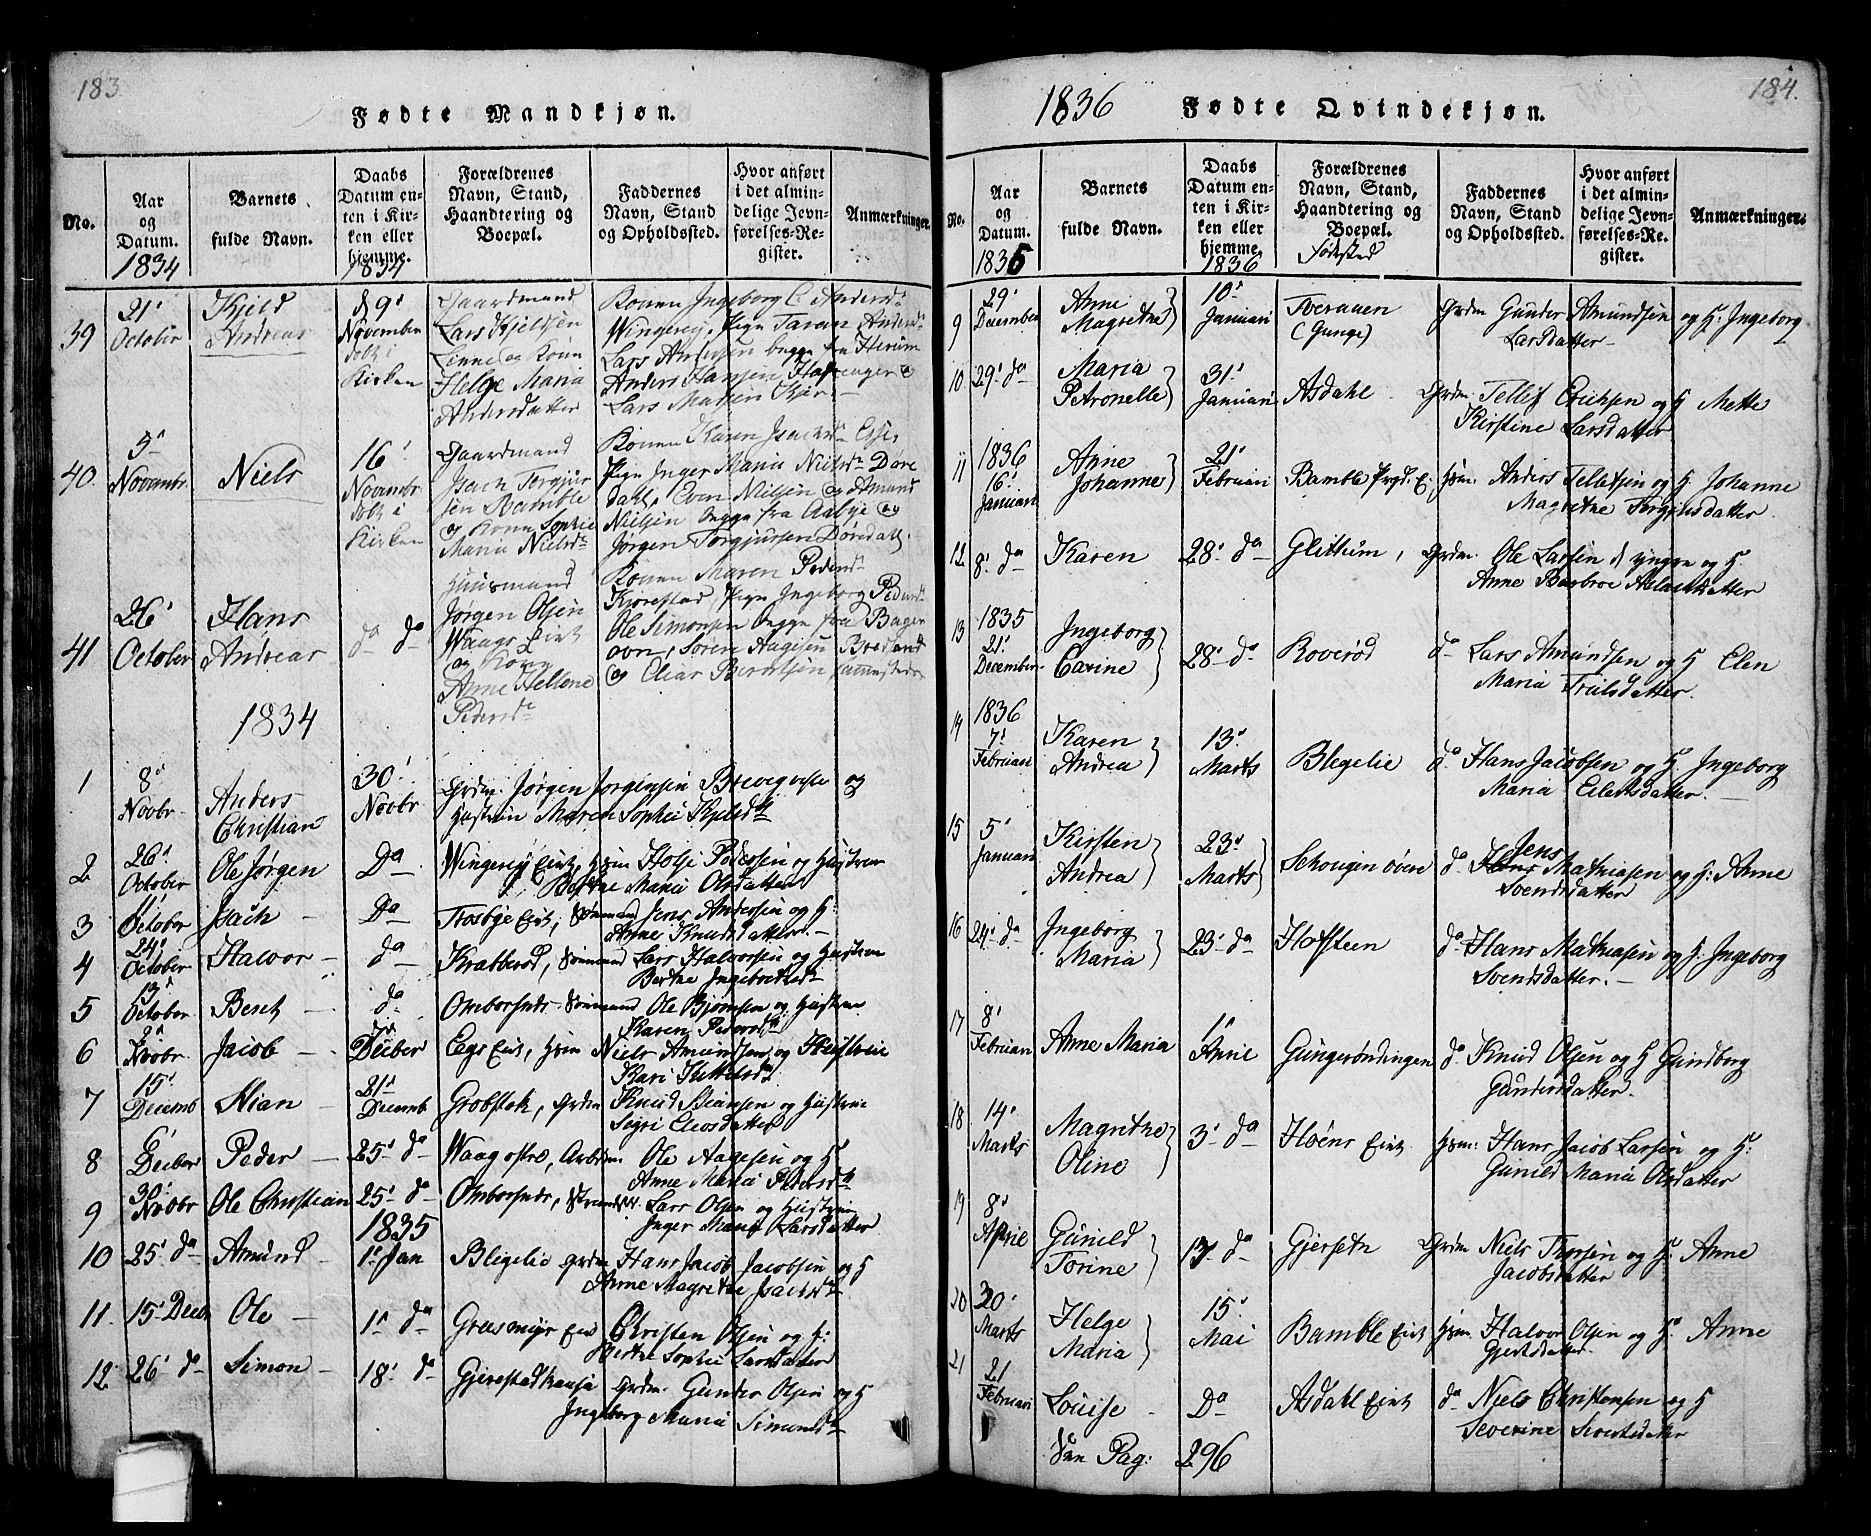 183
Fødte Mandkjøn.
No.
Aar og Datum.
1834
Barnets fulde Navn.
Daabs Datum enten i Kirken eller hjemme.
1834
Forældrenes Navn, Stand, Haandtering og Boepæl.
Faddernes Navn, Stand og Opholdssted.
Hvor anført i det almindelige Jevnførelses-Register.
Anmærkninger.
39
21' October
Kjeld Andreas
d 9' November
døbt i Kirken
Gaardmand
Lars Kjeldsen
Linne og Konen
Helge Maria
Andersdatter
Konen Ingeborg
Wingerej, Pign Taran Andersd.
Lars Andersen begge fra Herum
Anders Hansen
Lars Madsen
40.
5' Novembr.
Niels
16' Novembr
døbt i Kirken
Gaardmand
Isach Torgjursen Bamble
og Kone Sophie
Maria Nielsd.
Konen Karen Isachsd.
Pign Inger Maria Nielsd. Dørdahl, Even Nielsen og Amund
Nielsen begge fra Aabye og
Jørgen Torgjursen Døredall.
41
26' October
Hans Andreas
da da
Huusmand
Jørgen Olsen
Waags Eint
og Kone
Anne Hellene
Pedersd.
Konen Maren Pedersd.
Kjørestad, Pign Ingeborg Pedersd.
Ole Simonsen begge fra
Søren Aagesen
og Elias Berntsen
1834
1
8' Novbr.
Anders Christian
30' Novbr
Grdm. Jørgen Jørgensen Brevigvise og
Hustrue Maren Sophie Kjeldsd.
2
26' October
Ole Jørgen
Da
Wingerej Eint, Hsm Holje Pedersen og Hustrue
Berthe Maria Olsdatter
3
October
Isach
Da
Tosbye Eint, Sømand Jens Andersen og H:
Anne Knudsdatter
4
24' October
Halvor
da
Krabberød, Sømand Lars Halvorsen og Hustrue
Berthe
5
13' October
Berth
da
Omborsnes Sømand Ole Bjørnsen og Hustrue
Karen Pedersd.
6
2' Novbr.
Jacob
7' Decber
Eegs Eint, Hsm Niels Amundsen og Hustrue
Kari Kittelsd.
7
15' Decemb
Kian
21' Decemb
Grobstok, Grdm Knud Biansen og Hustrue
Sigri
8
6' Decber
Peder
25' da
Waag østre, Arbdm. Ole Aagesen og H
Anne Maria Pedersd.
9
30' Novbr
Ole Christian
25' da
Omborsnes, Lars Olsen og Hustrue
Inger Maria Larsdatter
1835
10
25' da
Amund
1' Jan
Blegelie Grdm Hans Jacob Jacobsen og H
Anne Magrethe Isachsd.
11.
15 Decbr
Ole
1' da
Christen Olsen og H:
Berthe Sophie Larsdatter
12.
26' da
Simon
18' da
Grdm. Gunder Olsen og H
Ingeborg Maria Simonsd.
184.
1836
Fødte Qvindekjøn.
No.
Aar og Datum.
1835
Barnets fulde Navn.
Daabs Datum enten i Kirken eller hjemme.
1836
Forældrenes Navn, Stand, Haandtering og Boepæl.
Fødested
Faddernes Navn, Stand og Opholdssted.
Hvor anført i det almindelige Jevnførelses-Register.
Anmærkninger.
9
29' December
Anne Magrethe
10' Januari
Tveraaen (Junge)
Grdm Gunder Amundsen og H: Ingeborg
Larsdatter
10
29' da
Maria Petronelle
31' Januari
Asdahl
Grdm. Tellef Erichsen og H Mette
Kirstine Larsdatter
11
1836
16' Januari
Anne Johanne
21' Februari
Bamble Prgd. E.
Hsm. Anders Tellefsen og H Johanne
Magrethe Torgersdatter
12
8' da
Karen
28' da
Glittum,
Grdm. Ole Larsen d yngre og H.
Anne Barbroe Aslacksdatter
13
1835
21' December
Ingeborg Carine
28' da
Roverød
da Lars Amundsen og H Elen
Maria Trulsdatter.
14
1836
7' Februari
Karen Andrea
13' Marts
Blegelie
da Hans Jacobsen og H Ingeborg
Maria Eilertsdatter.
15
5' Januari
Kirsten Andrea
23' Marts
Schougen øvre
Jens
da Hans Mathiasen og H: Anne
Svendsdatter
16
24' da
Ingeborg Maria
23' da
Hofsteen
da Hans Mathiasen og H: Ingeborg
Svendsdatter.
17
8' Februari
Anne Maria
1' Aprie
Gungerøndingen
da Knud Olsen og H Gundborg
Gundersdatter.
18
14' Marts
Magrethe Oline
3' da
Høens Eint
Hsm: Hans Jacob Larsen og H:
Gunild Maria Olsdatter
19
8' Aprie
Gunild Torine
17' da
Gjerseth
Grdm Niels Thorsen og H: Anne
Jacobsdatter
20
30' Marts
Helge Maria
15' Mai
Bamble Eint
Hsm. Halvor Olsen og H: Anne
Gjertsdatter
21
21 Februari
Louise
Da
Asdahl Eint
da Niels Christensen og H
Severine Sivertsdatter
Vm Pag: 296